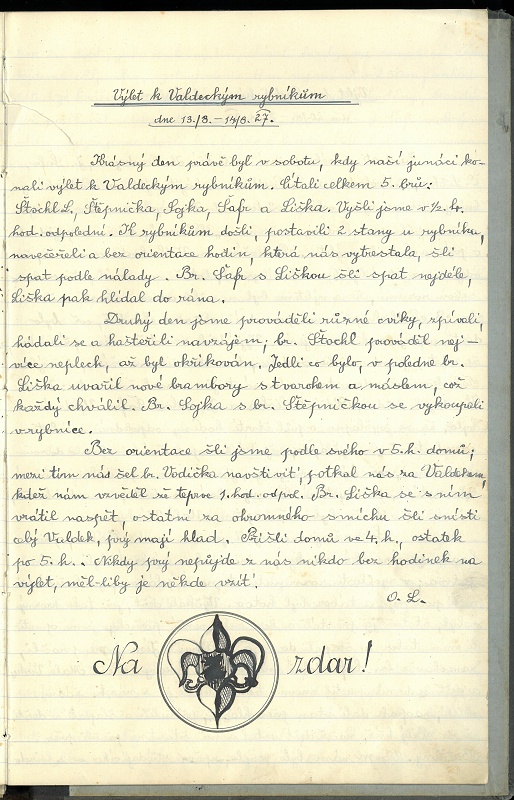 Výlet k Valdeckým rybníkům
dne 13./8. – 14/8. 27.
Krásný den právě byl v sobotu, kdy naší junáci ko-
nali výlet k Valdeckým rybníkům. Čítali celkem 5. brů:
Štochl L., Štěpnička, Sojka, Šafr a Liška. Vyšli jsme v ½. 4.
hod. odpolední. K rybníkům došli, postavili 2 stany u rybníku,
navečeřeli a bez orientace hodin, která nás vytrestala, šli
spat podle nálady. Br. Šafr s Liškou šli spat nejdéle,
Liška pak hlídal do rána.
Druhý den jsme prováděli různé cviky, zpívali,
hádali se a hašteřili navzájem; br. Štochl prováděl nej-
více neplech, až byl okřikován. Jedli co bylo, v poledne br.
Liška uvařil nové brambory s tvarohem a máslem, což
každý chválil. Br. Sojka s br. Štěpničkou se vykoupali
v rybníce.
Bez orientace šli jsme podle svého v 5. h. domů;
mezi tím nás šel br. Vodička navštívit, potkal nás za Valdekem,
kdež nám vzvěděl že teprve 1. hod. odpol. Br. Liška se s ním
vrátil naspět, ostatní za ohromného smíchu šli snísti
celý Valdek, prý mají hlad. Přišli domů ve 4. h., ostatek
po 5. h.. Nikdy prý nepůjde z nás nikdo bez hodinek na
výlet, měl-liby je někde vzíť.
O. L.
Na zdar!